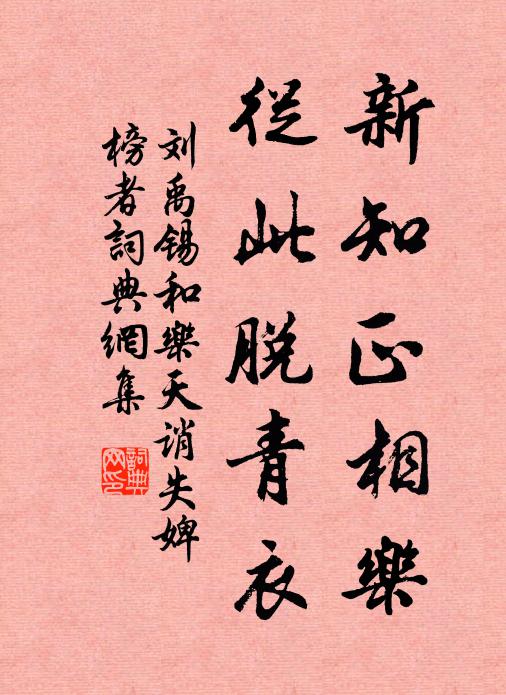 新知正相樂
從此脱青衣
刘禹锡和樂天誚失婢
榜者詞典網集
詞典网印